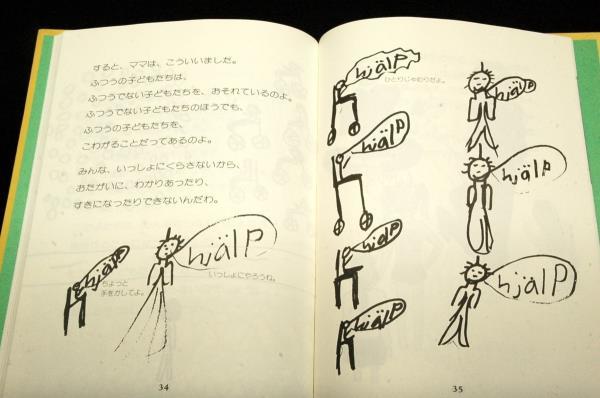 すると、ママは、こういいました。
ふつうの子どもたちは、
ふつうでない子どもたちを、おそれているのよ。
ふつうでない子どもたちのほうでも、
ふつうの子どもたちを、
こわがることだってあるのよ。
みんな、いっしょにくらさないから、
おたがいに、わかりあったり、
すきになったりできないんだわ。
hjälp
ちょっと
手をかしてよ。
hjälp
いっしょにやろうね。
34
hjälp
ひとりじゃむりだよ。
hjälp
hjälp
hjälp
hjälp
hjälp
hjälp
hjälp
35